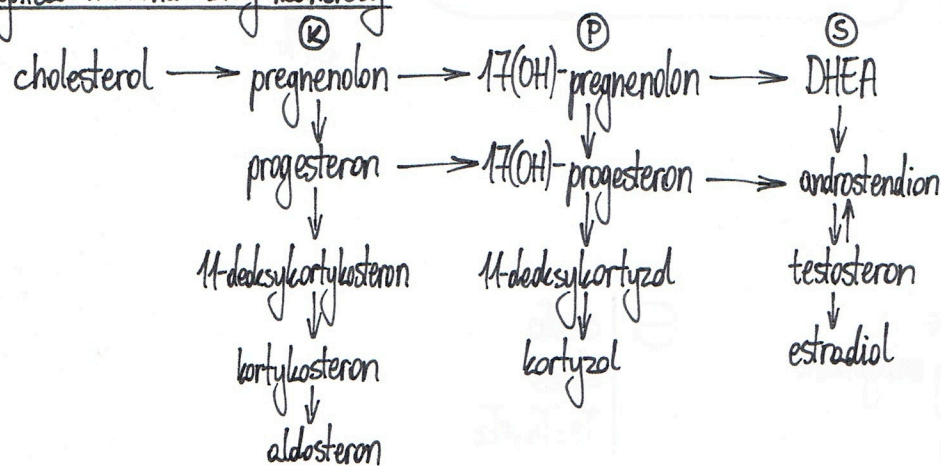 Ⓚ Ⓟ Ⓢ
cholesterol → pregnenolon → 17(OH)-pregnenolon → DHEA
progesteron → 17(OH)-progesteron → androstendion
11-deoksykortykosteron 11-deoksykortyzol testosteron
kortykosteron kortyzol estradiol
aldosteron